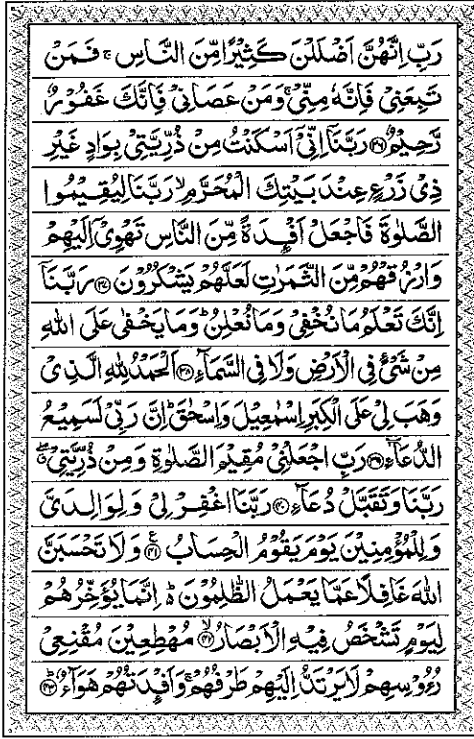 رَبِّ اِنَّهُنَّ اَضْلَلْنَ كَثِيْرًا مِّنَ النَّاسِ ۚ فَمَنْ
تَبِعَنِيْ فَاِنَّهٗ مِنِّيْ ۚ وَمَنْ عَصَانِيْ فَاِنَّكَ غَفُوْرٌ
رَّحِيْمٌ ﴿۳۶﴾ رَبَّنَاۤ اِنِّيْۤ اَسْكَنْتُ مِنْ ذُرِّيَّتِيْ بِوَادٍ غَيْرِ
ذِيْ زَرْعٍ عِنْدَ بَيْتِكَ الْمُحَرَّمِ ۙ رَبَّنَا لِيُقِيْمُوا
الصَّلٰوةَ فَاجْعَلْ اَفْـِٕدَةً مِّنَ النَّاسِ تَهْوِيْۤ اِلَيْهِمْ
وَارْزُقْهُمْ مِّنَ الثَّمَرٰتِ لَعَلَّهُمْ يَشْكُرُوْنَ ﴿۳۷﴾ رَبَّنَاۤ
اِنَّكَ تَعْلَمُ مَا نُخْفِيْ وَمَا نُعْلِنُ ؕ وَمَا يَخْفٰى عَلَى اللّٰهِ
مِنْ شَيْءٍ فِي الْاَرْضِ وَلَا فِي السَّمَآءِ ﴿۳۸﴾ اَلْحَمْدُ لِلّٰهِ الَّذِيْ
وَهَبَ لِيْ عَلَى الْكِبَرِ اِسْمٰعِيْلَ وَاِسْحٰقَ ؕ اِنَّ رَبِّيْ لَسَمِيْعُ
الدُّعَآءِ ﴿۳۹﴾ رَبِّ اجْعَلْنِيْ مُقِيْمَ الصَّلٰوةِ وَمِنْ ذُرِّيَّتِيْ ۖ
رَبَّنَا وَتَقَبَّلْ دُعَآءِ ﴿۴۰﴾ رَبَّنَا اغْفِرْ لِيْ وَلِوَالِدَيَّ
وَلِلْمُؤْمِنِيْنَ يَوْمَ يَقُوْمُ الْحِسَابُ ﴿۴۱﴾ وَلَا تَحْسَبَنَّ
اللّٰهَ غَافِلًا عَمَّا يَعْمَلُ الظّٰلِمُوْنَ ؕ اِنَّمَا يُؤَخِّرُهُمْ
لِيَوْمٍ تَشْخَصُ فِيْهِ الْاَبْصَارُ ﴿۴۲﴾ مُهْطِعِيْنَ مُقْنِعِيْ
رُءُوْسِهِمْ لَا يَرْتَدُّ اِلَيْهِمْ طَرْفُهُمْ ۚ وَاَفْـِٕدَتُهُمْ هَوَآءٌ ﴿۴۳﴾